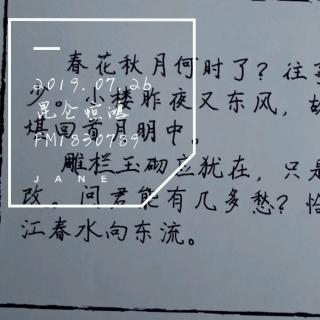 春花秋月何时了？往事
少。小楼昨夜又东风，故
堪回首月明中。
雕栏玉砌应犹在，只是
改。问君能有几多愁？恰
江春水向东流。
2019.07.26
昆仑惊鸿
FM1830789
JANE